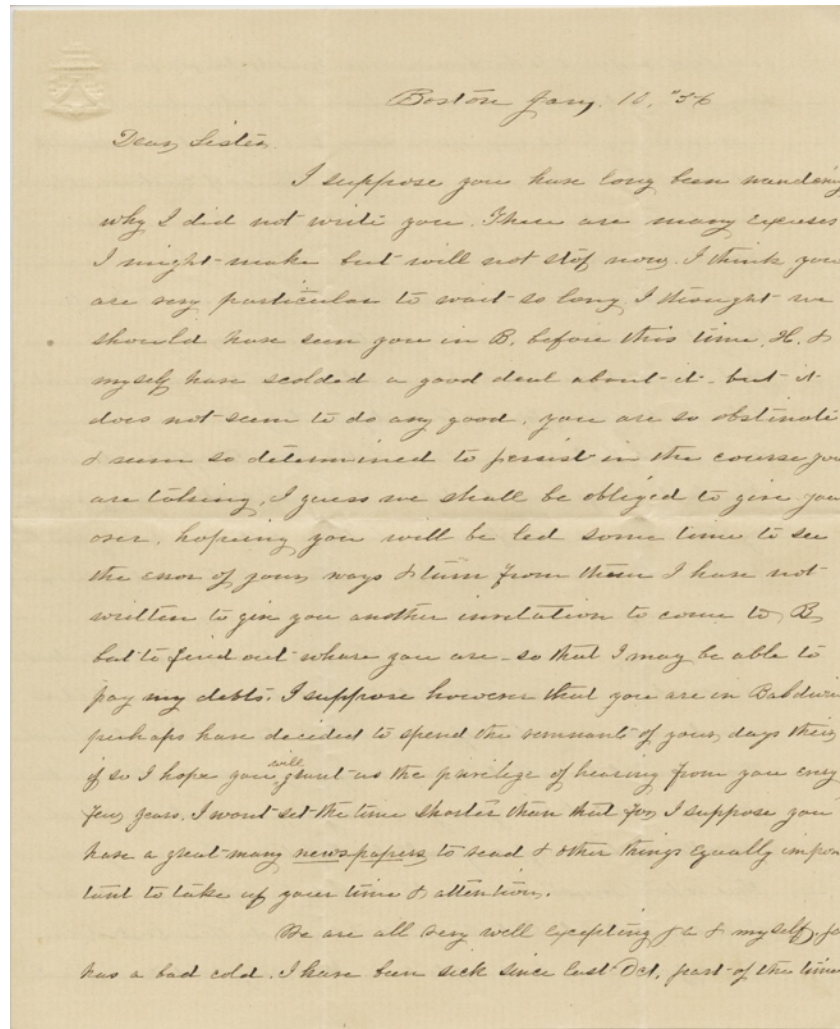 Boston Jany. 10, "56
Dear Sister
I suppose you have long been wondering
why I did not write you. There are many excuses
I might make but will not stop now. I think you
are very particular to wait so long. I thought we
should have seen you in B. before this time, H. &
myself have scolded a good deal about it - but it
does not seem to do any good, you are so obstinate
& seem so determined to persist in the course you
are taking, I guess we shall be obliged to give you
over, hoping you will be led some time to see
the error of your ways & turn from them I have not
written to give you another invitation to come to B,
but to find out where you are - so that I may be able to
pay my debts. I suppose however that you are in Baldwin
perhaps have decided to spend the remnant of your days there
if so I hope you will grant us the privilege of hearing from you every
few years. I wont set the time shorter than that for I suppose you
have a great many newspapers to read & other things equally impor
tant to take up your time & attention.
We are all very well excepting & myself.
has a bad cold. I have been sick since last Oct, part of the time